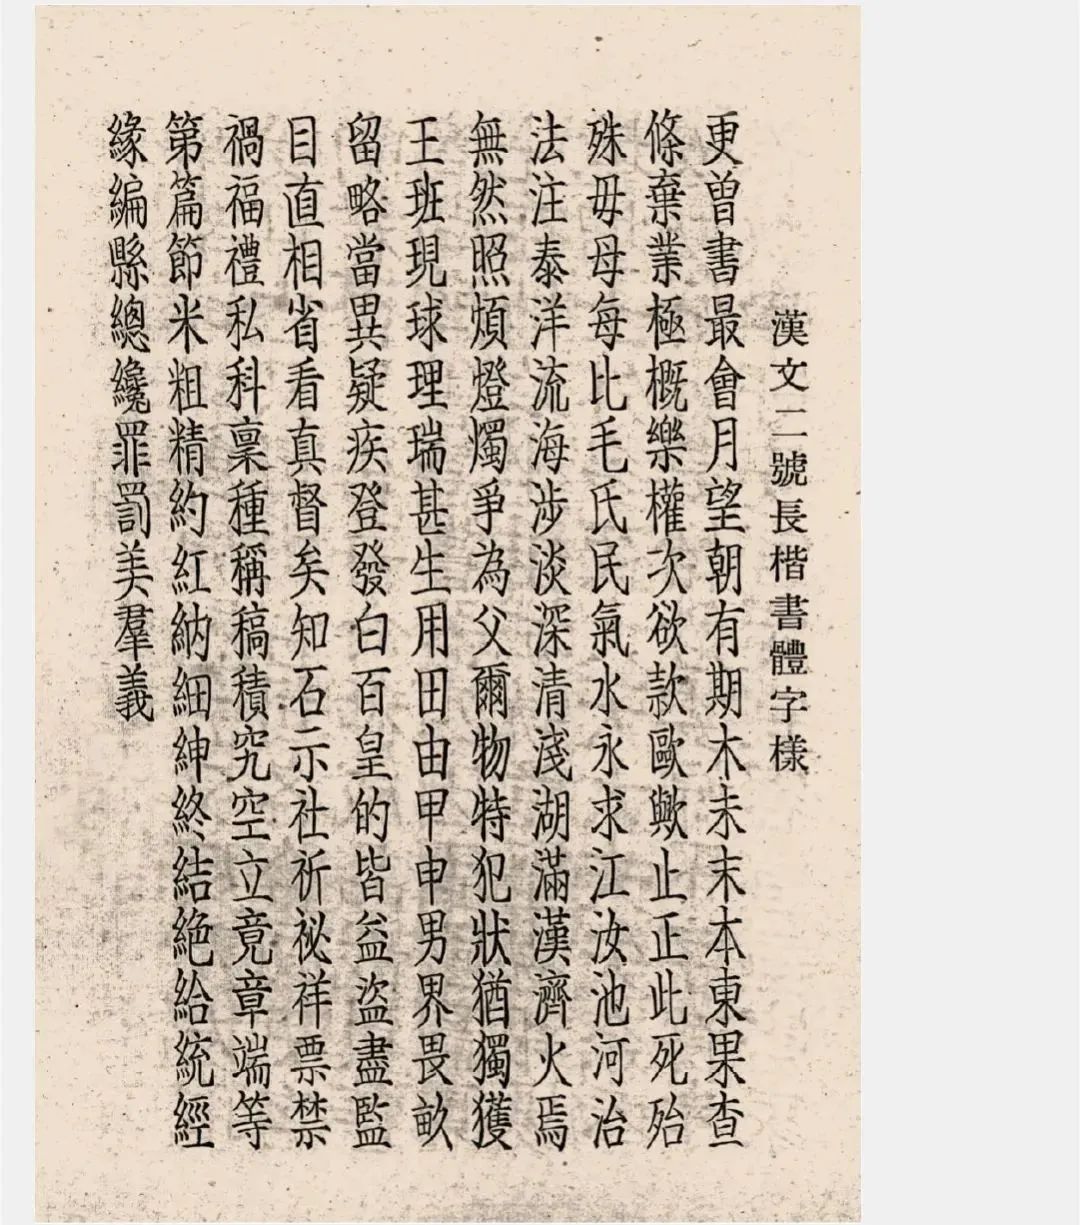 漢文二號長楷書體字樣
更曾書最會月望朝有期木未末本東果查
條棄業極概樂權次欲款歐歟止正此死殆
殊毋母每比毛氏民氣水永求江汝池河治
法注泰洋流海涉淡深清淺湖滿漢濟火焉
無然照煩燈燭爭為父爾物特犯狀猶獨獲
王班現球理瑞甚生用田由甲申男界畏畝
留略當異疑疾登發白百皇的皆益盜盡監
目直相省看真督矣知石示社祈祕祥票禁
禍福禮私科稟種稱稿積究空立竟章端等
第篇節米粗精約紅納細紳終結絕給統經
緣編縣總纔罪罰美羣義